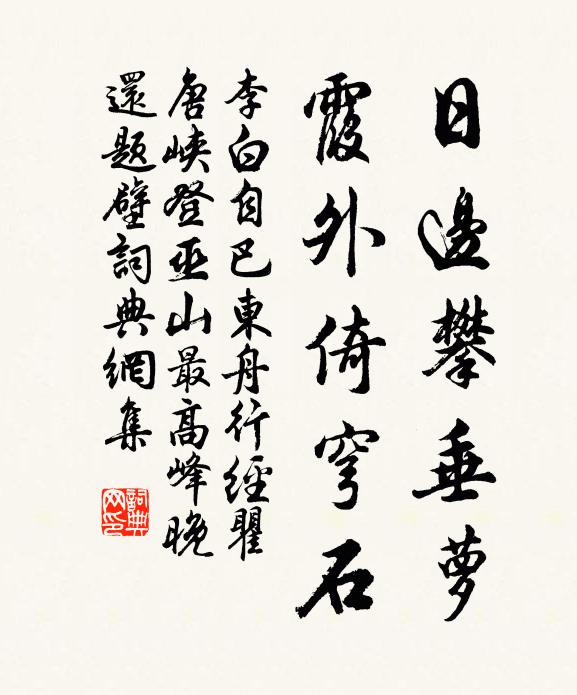 日邊攀垂萝
霞外倚穹石
李白自巴東舟行經瞿
唐峽登巫山最高峰晚
還題壁詞典網集
詞典
网印